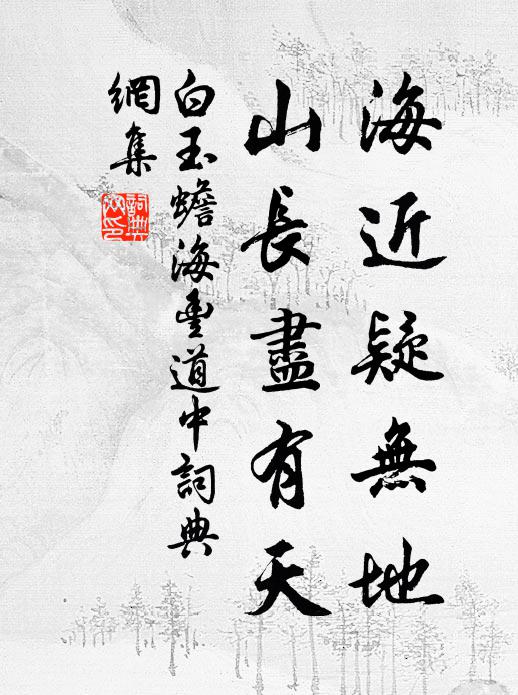 海近疑無地
山長盡有天
白玉蟾海豐道中詞典
網集
詞典